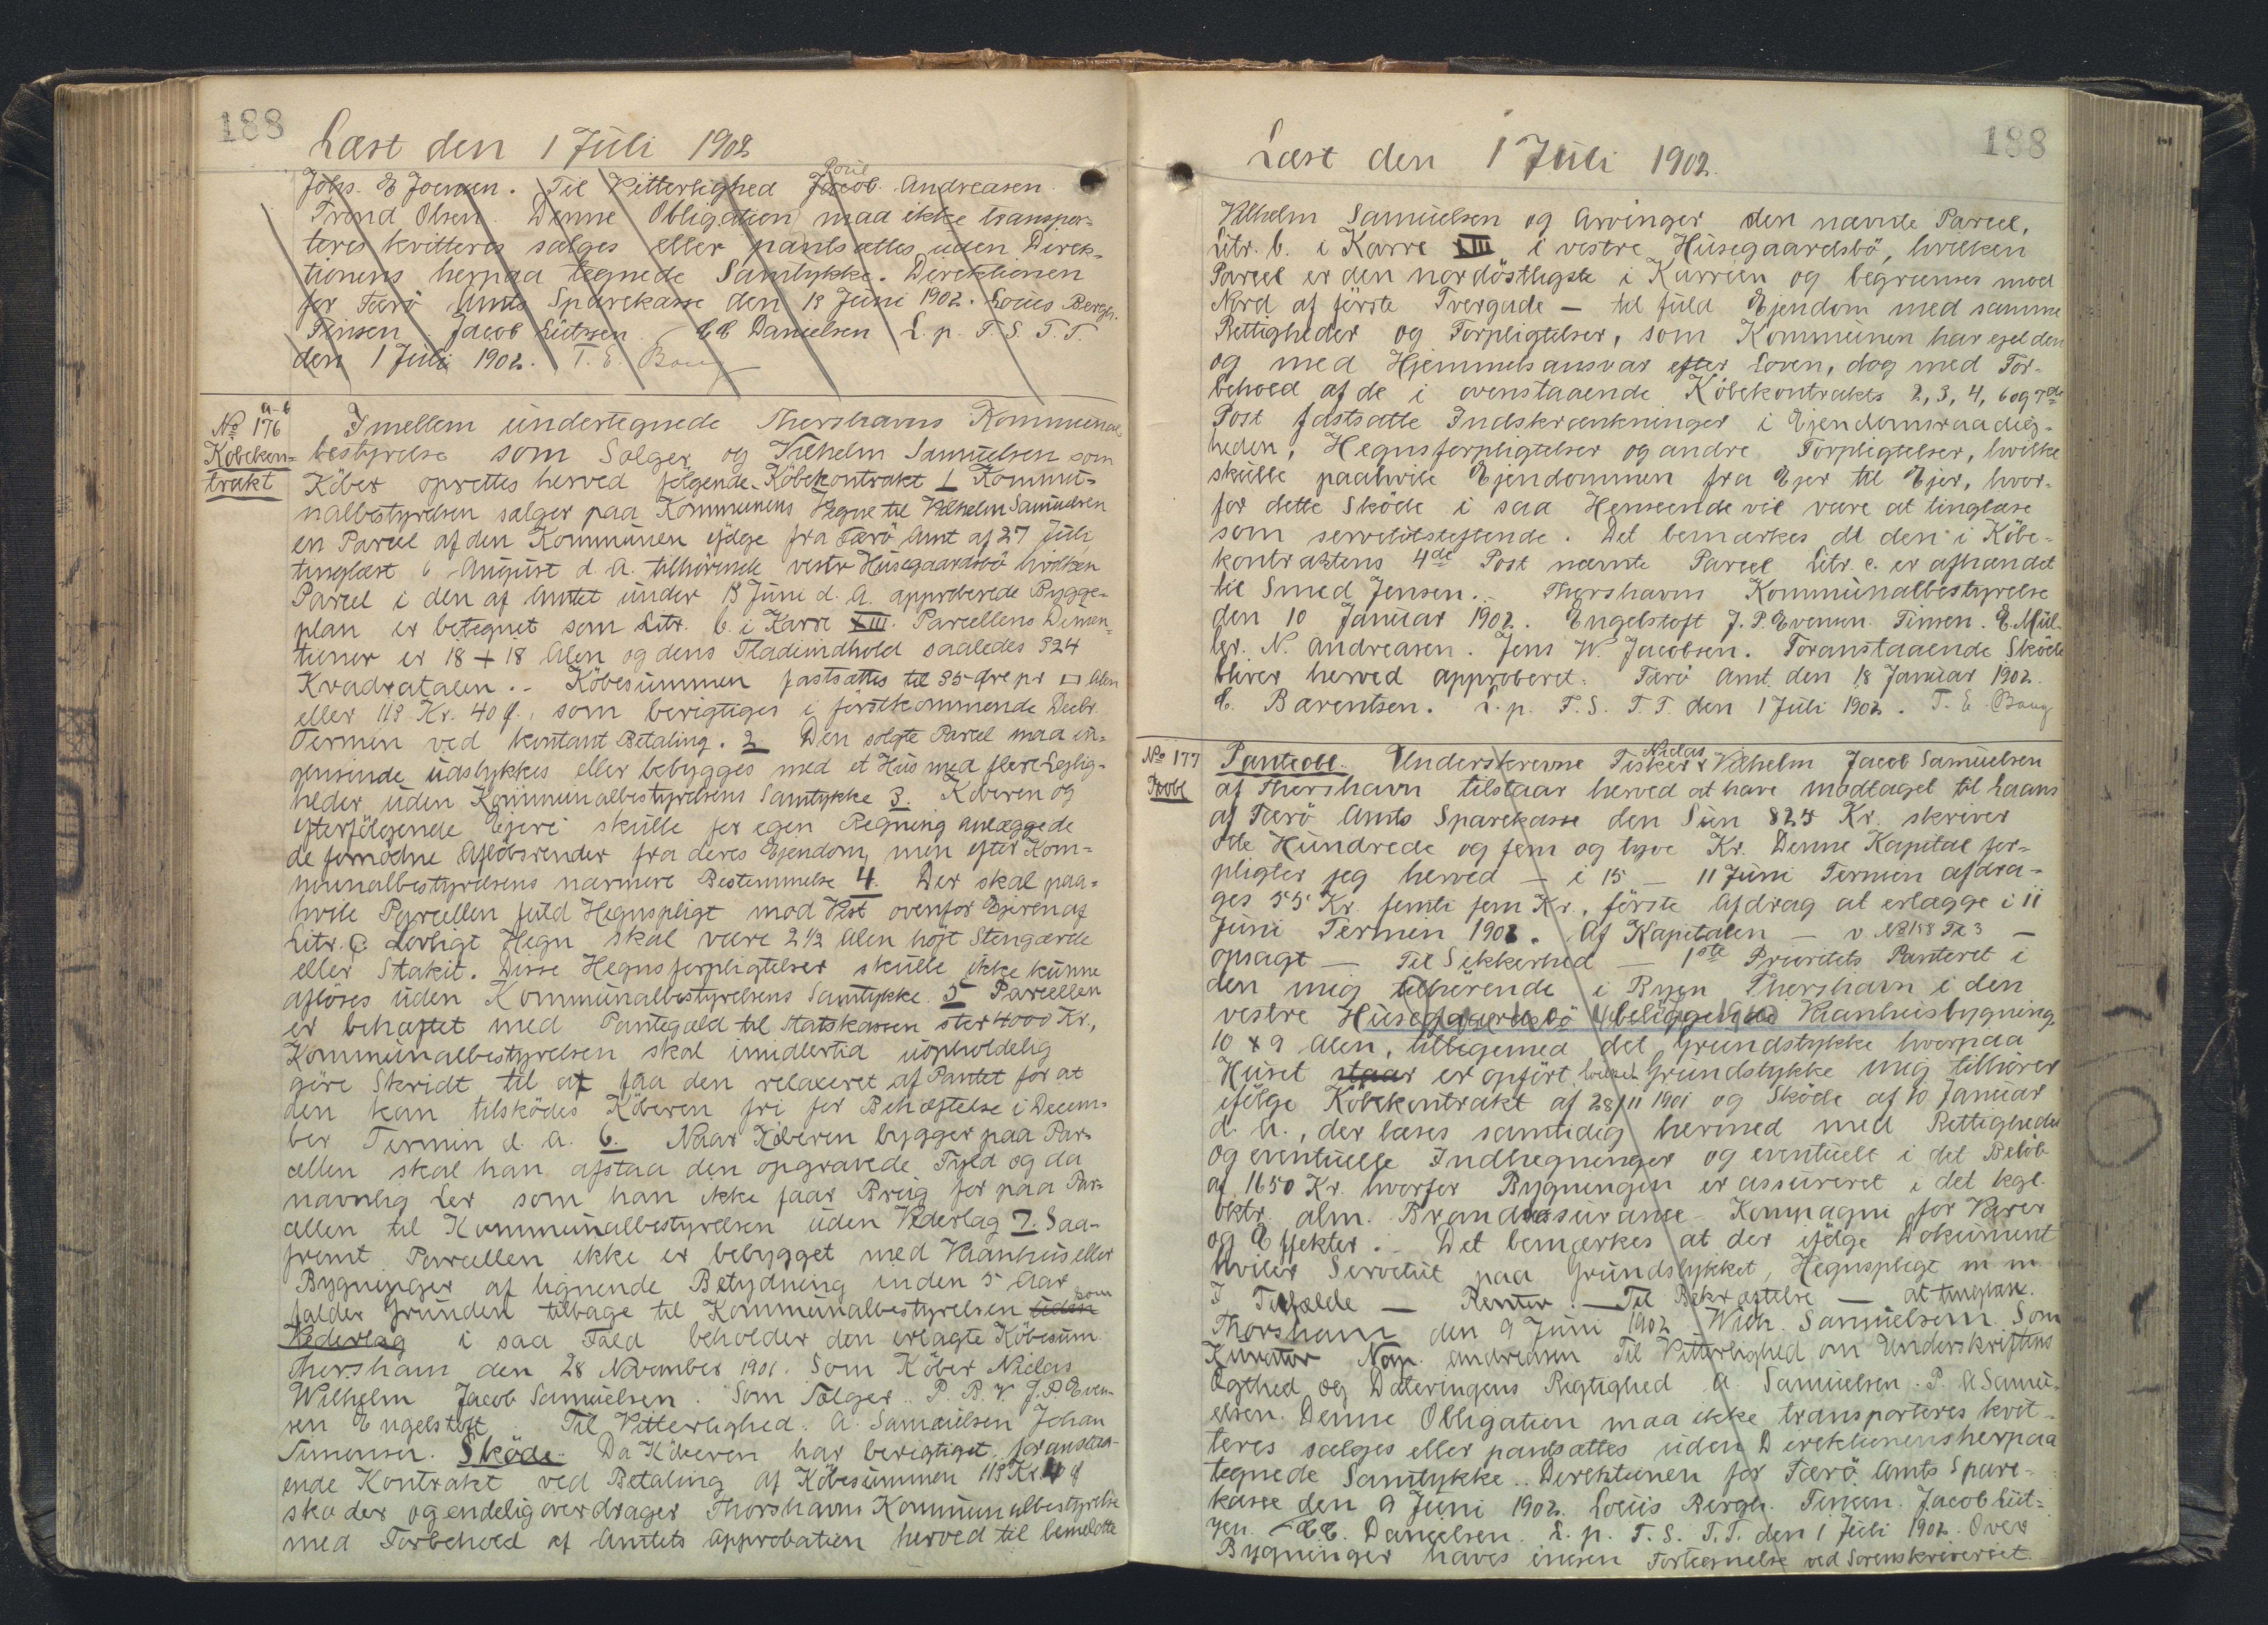 188
Læst den 1 Juli 1902
Poul
Johs. E Joensen. Til Vitterlighed Jacob Andreasen.
Trond Olsen. Denne Obligation maa ikke transpor-
teres kvitteres sælges eller pantsættes uden Direk-
tionens herpaa tegnede Samtykke. Direktionen
for Færö Amts Sparekasse den 13 Juni 1902. Louis Bergh.
Finsen. Jacob Lützen. CC Danielsen L. p. F. S. T. T.
den 1 Juli 1902. T. E. Bang
a-b
No 176
Købekon-
trakt
Imellem undertegnede Thorshavns Kommunal-
bestyrelse som Sælger og Vilhelm Samuelsen som
Köber oprettes herved følgende Köbekontrakt 1 Kommu-
nalbestyrelsen sælger paa Kommunens Vegne til Vilhelm Samuelsen
en Parcel af den Kommunen ifølge fra Færö Amt af 27 Juli
tinglæst 6 August d. A. tilhörende vestre Husegaardsbö hvilken
Parcel i den af Amtet under 13 Juni d. A. approberede Bygge-
plan er betegnet som Litr. b. i Karre XIII. Parcellens Dimen-
tioner er 18 + 18 Alen og dens Fladeindhold saaledes 324
Kvadratalen. - Köbesummen fastsættes til 35 Øre pr □ Alen
eller 113 Kr. 40 Ø., som berigtiges i förstkommende Decbr.
Termin ved kontant Betaling. 2 Den solgte Parcel maa in-
gensinde udstykkes eller bebygges med et Hus med flere Lejlig-
heder uden Kommunalbestyrelsens Samtykke 3. Köberen og
efterfölgende Ejere skulle for egen Regning anlægge de
de fornødne Aflöbsrender fra deres Ejendom, men efter Kom-
munalbestyrelsens nærmere Bestemmelse 4. Der skal paa-
hvile Parcellen fuld Hegnspligt mod Vest ovenfor Ejeren af
Litr. C. Lovligt Hegn skal være 2 1/2 Alen höjt Stengærde
eller Stakit. Disse Hegnsforpligtelser skulle ikke kunne
aflöses uden Kommunalbestyrelsens Samtykke. 5 Parcellen
er behæftet med Pantegæld til Statskassen stor 4000 Kr.,
Kommunalbestyrelsen skal imidlertid uopholdelig
göre Skridt til at faa den relaxeret af Pantet for at
den kan tilskødes Köberen fri for Behæftelse i Decem-
ber Termin d. A. 6. Naar Köberen bygger paa Par-
cellen skal han afstaa den opgravede Fyld og da
navnlig Ler som han ikke faar Brug for paa Par-
cellen til Kommunalbestyrelsen uden Vederlag 7. Saa-
fremt Parcellen ikke er bebygget med Vaanhus eller
Bygninger af lignende Betydning inden 5 Aar
falder Grunden tilbage til Kommunalbestyrelsen uden som
Vederlag i saa Fald beholder den erlagte Köbesum
Thorshavn den 28 November 1901. Som Köber Niclas
Wilhelm Jacob Samuelsen. Som Sælger. P. K. V. J. P Even-
sen Engelstoft. Til Vitterlighed. A. Samuelsen Johan
Simonsen. Sköde. Da Köberen har berigtiget foranstaa-
ende Kontrakt ved Betaling af Köbesummen 113 Kr. 4 Ø
skøder og endelig overdrager Thorshavns Kommunalbestyrelse
med Forbehold af Amtets Approbation herved til bemeldte
188
Læst den 1 Juli 1902.
Vilhelm Samuelsen og Arvinger den nævnte Parcel,
Litr. b. i Karre XIII i vestre Husegaardsbö, hvilken
Parcel er den nordöstligste i Karreen og begrænses mod
Nord af förste Tvergade — til fuld Ejendom med samme
Rettigheder og Forpligtelser, som Kommunen har ejet den
og med Hjemmelsansvar efter Loven, dog med For-
behold af de i ovenstaaende Köbekontrakts 2, 3, 4, 6 og 7de
Post fastsatte Indskrænkninger i Ejendomsraadig-
heden, Hegnsforpligtelser og andre Forpligtelser, hvilke
skulle paahvile Ejendommen fra Ejer til Ejer, hvor-
for dette Sköde i saa Henseende vil være at tinglæse
som servitutstiftende. Det bemærkes at den i Köbe-
kontraktens 4de Post nævnte Parcel Litr. c. er afhændet
til Smed Jensen. - Thorshavns Kommunalbestyrelse
den 10 Januar 1902. Engelstoft J. P. Evensen. Finsen. E. Mül-
ler. N. Andreasen. Jens W. Jacobsen. Foranstaaende Sköde
bliver herved approberet. Færö Amt den 18 Januar 1902.
C. Bærentsen. L. p. F. S. T. T. den 1 Juli 1902. T. E. Bang
No 177
Pobl
Niclas
Panteobl. Underskrevne Fisker Vilhelm Jacob Samuelsen
af Thorshavn tilstaar herved at have modtaget til Laans
af Færö Amts Sparekasse den Sum 825 Kr. skriver
otte Hundrede og fem og tyve Kr. Denne Kapital for-
pligter jeg herved — i 15 — 11 Juni Termen afdra-
ges 55 Kr. femti fem Kr., förste Afdrag at erlægge i 11
Juni Termin 1903. Af Kapitalen — v No 158 Fol 3 —
opsagt — Til Sikkerhed — 1ste Prioritets Panteret i
den mig tilhörende i Byen Thorshavn i den
vestre Husegaardsbö beliggende Vaanhusbygning,
10 x 9 Alen, tilligemed det Grundstykke hvorpaa
Huset staar er opfört, hvilket Grundstykke mig tilhörer
ifølge Köbekontrakt af 28/11 1901 og Sköde af 10 Januar
d. A., der læses samtidig hermed med Rettigheder
og eventuelle Indhegninger og eventuelt i det Belöb
af 1650 Kr. hvorfor Bygningen er assureret i det kgl.
oktr. alm. Brandassurance-Kompagni for Varer
og Effekter. Det bemærkes at der ifølge Dokument
hviler Servitut paa Grundstykket, Hegnspligt m m
I Tilfælde — Renter. — Til Bekræftelse — at tinglæse.
Thorshavn den 9 Juni 1902 Wilh. Samuelsen. Som
Kurator Nap. Andreasen Til Vitterlighed om Underskriftens
Ægthed og Dateringens Rigtighed A. Samuelsen. P. A Samu-
elsen. Denne Obligation maa ikke transporteres kvit-
teres sælges eller pantsættes uden Direktionens herpaa
tegnede Samtykke. Direktionen for Færö Amts Spare-
kasse den 9 Juni 1902. Louis Bergh. Finsen. Jacob Lüt-
zen. CC. Danielsen. L. p. F. S. T. T. den 1 Juli 1902. Over
Bygninger haves ingen Fortegnelse ved Sorenskriveriet.